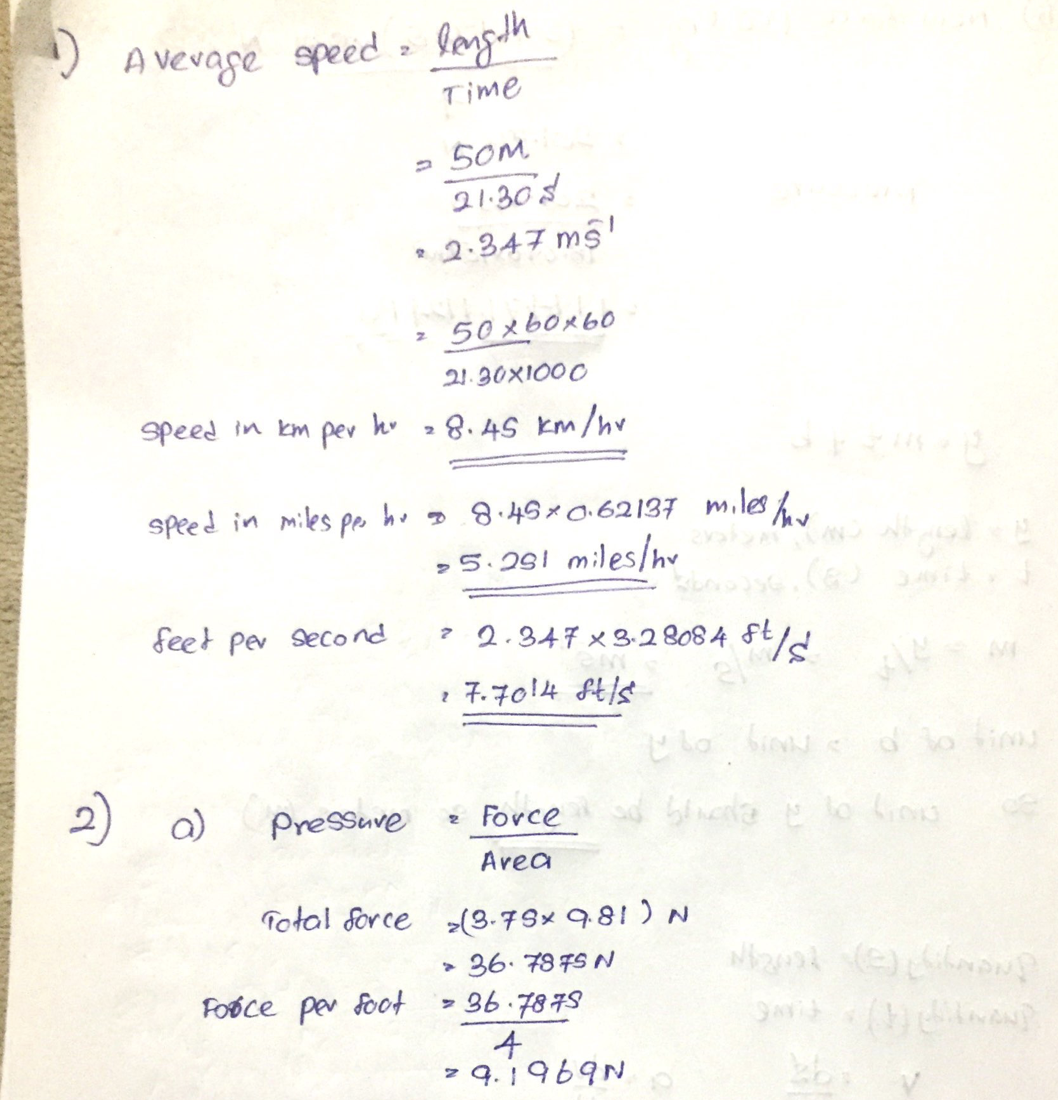 1) Average speed = length
Time
= 50M
21.30 s
= 2.347 ms⁻¹
= 50 x 60 x 60
21.30 x 1000
speed in km per hr = 8.45 km/hr
speed in miles per hr = 8.45 x 0.62137 miles/hr
= 5.251 miles/hr
feet per second = 2.347 x 3.28084 ft/s
= 7.7014 ft/s
2) a) Pressure = Force
Area
Total force = (3.75 x 9.81) N
= 36.7875 N
Force per foot = 36.7875
4
= 9.1969 N